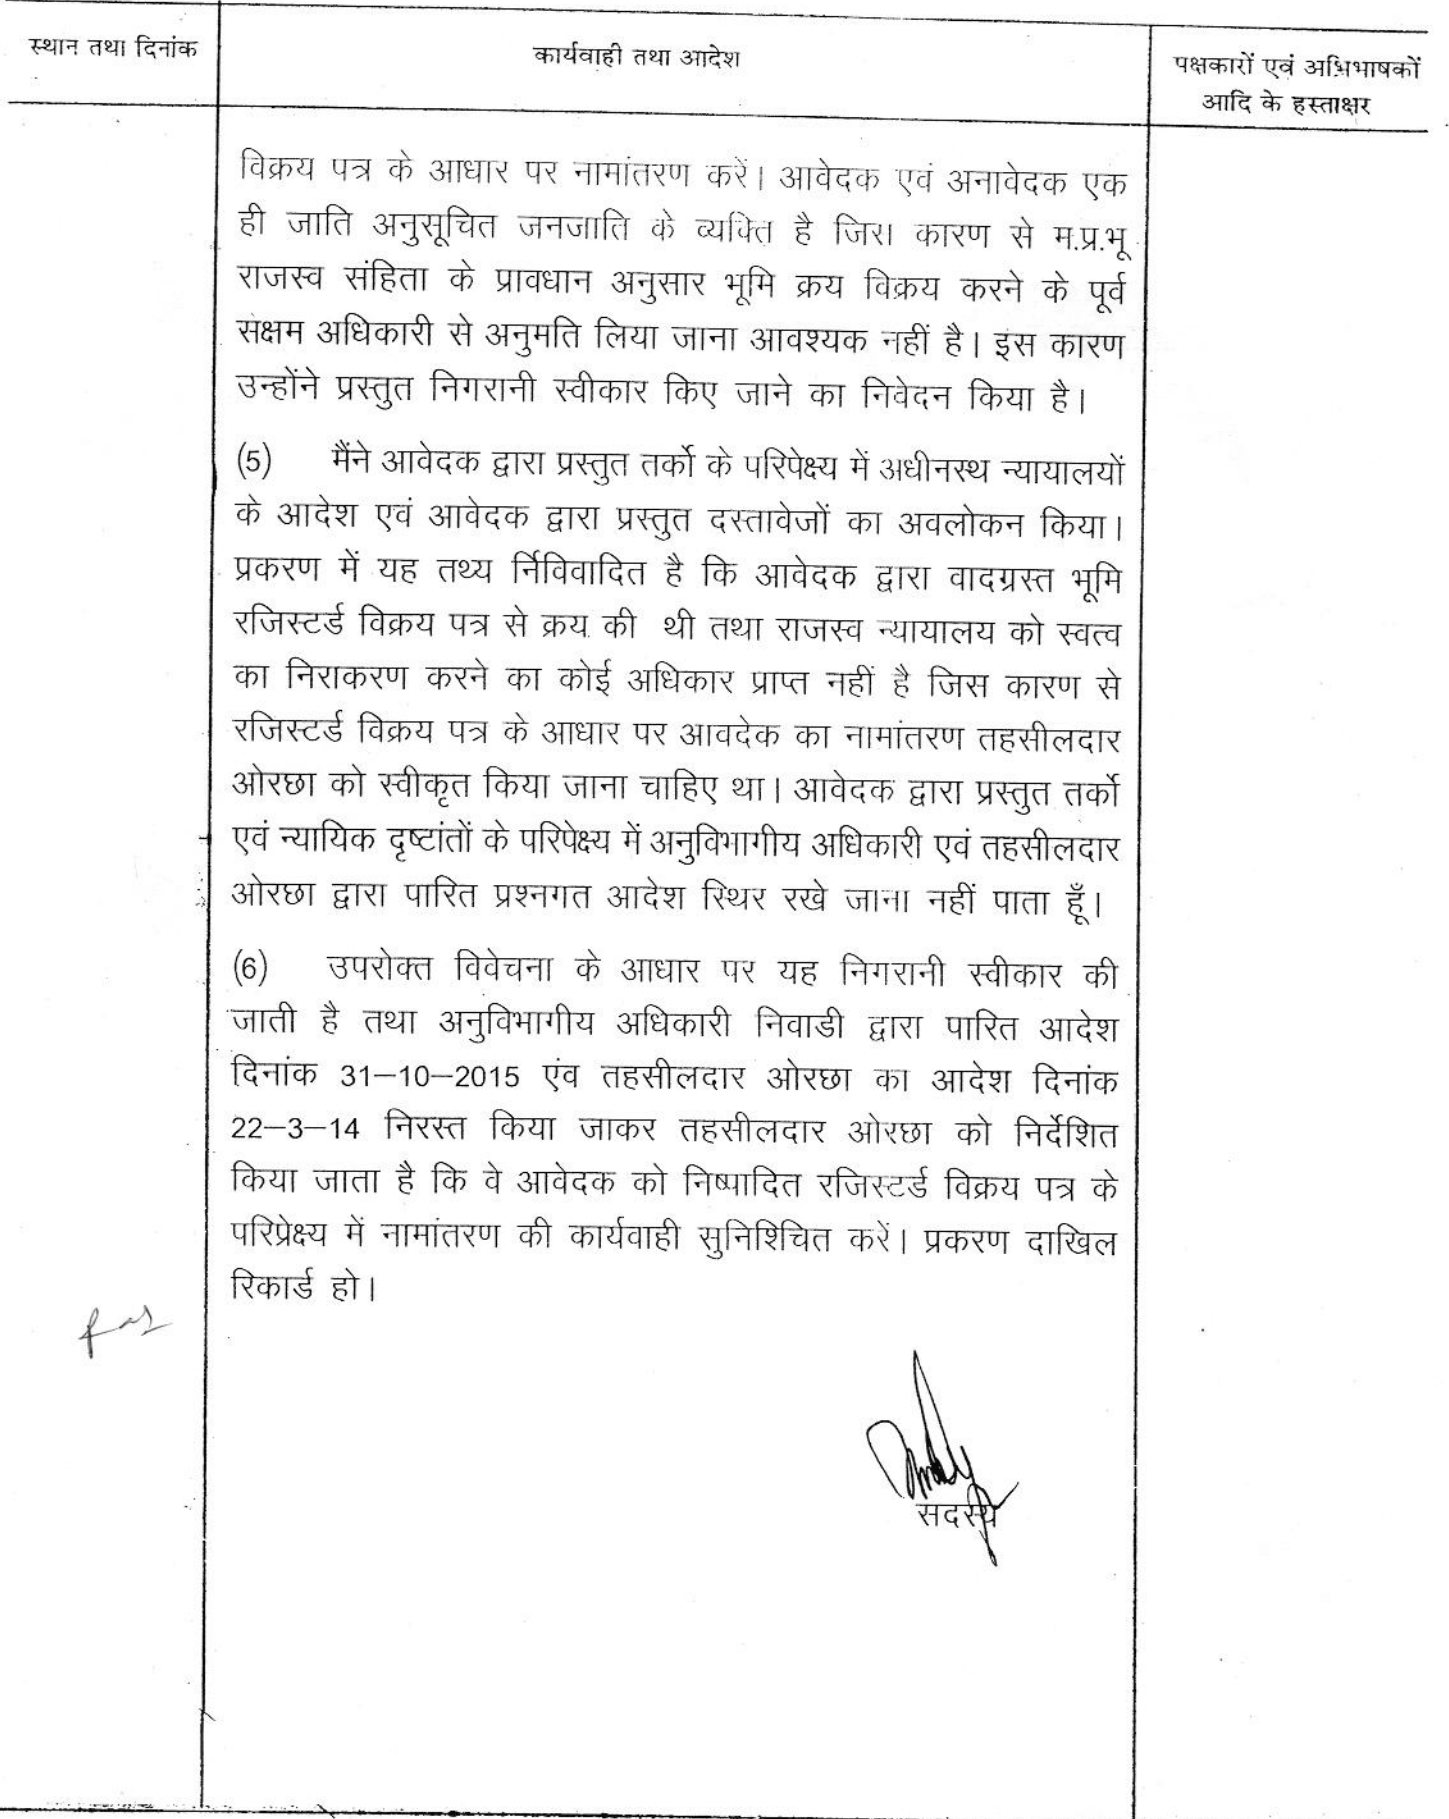 स्थान तथा दिनांक
कार्यवाही तथा आदेश
पक्षकारों एवं अभिभाषकों
आदि के हस्ताक्षर
विक्रय पत्र के आधार पर नामांतरण करें। आवेदक एवं अनावेदक एक
ही जाति अनुसूचित जनजाति के व्यक्ति है जिस कारण से म.प्र.भू
राजस्व संहिता के प्रावधान अनुसार भूमि क्रय विक्रय करने के पूर्व
सक्षम अधिकारी से अनुमति लिया जाना आवश्यक नहीं है। इस कारण
उन्होंने प्रस्तुत निगरानी स्वीकार किए जाने का निवेदन किया है।
(5) मैंने आवेदक द्वारा प्रस्तुत तर्को के परिपेक्ष्य में अधीनस्थ न्यायालयों
के आदेश एवं आवेदक द्वारा प्रस्तुत दस्तावेजों का अवलोकन किया।
प्रकरण में यह तथ्य र्निविवादित है कि आवेदक द्वारा वादग्रस्त भूमि
रजिस्टर्ड विक्रय पत्र से क्रय की थी तथा राजस्व न्यायालय को स्वत्व
का निराकरण करने का कोई अधिकार प्राप्त नहीं है जिस कारण से
रजिस्टर्ड विक्रय पत्र के आधार पर आवदेक का नामांतरण तहसीलदार
ओरछा को स्वीकृत किया जाना चाहिए था। आवेदक द्वारा प्रस्तुत तर्को
एवं न्यायिक दृष्टांतों के परिपेक्ष्य में अनुविभागीय अधिकारी एवं तहसीलदार
ओरछा द्वारा पारित प्रश्नगत आदेश स्थिर रखे जाना नहीं पाता हूँ।
(6) उपरोक्त विवेचना के आधार पर यह निगरानी स्वीकार की
जाती है तथा अनुविभागीय अधिकारी निवाडी द्वारा पारित आदेश
दिनांक 31–10–2015 एंव तहसीलदार ओरछा का आदेश दिनांक
22–3–14 निरस्त किया जाकर तहसीलदार ओरछा को निर्देशित
किया जाता है कि वे आवेदक को निष्पादित रजिस्टर्ड विक्रय पत्र के
परिप्रेक्ष्य में नामांतरण की कार्यवाही सुनिश्चित करें। प्रकरण दाखिल
रिकार्ड हो।
सदस्य